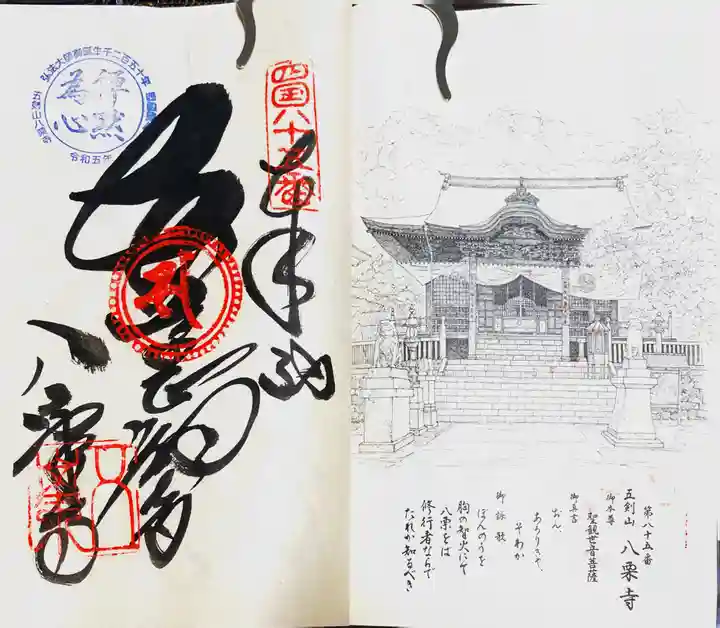 第八十五番
五剣山 八栗寺
御本尊
聖観世音菩薩
御真言
おん
あろりきゃ
そわか
御詠歌
ぼんのうを
胸の智火にて
八栗をば
修行者ならで
たれか知るべき
四国八十五番
奉納
八栗寺
弘法大師御誕生千二百五十年
為心
令和五年
五剣山八栗寺